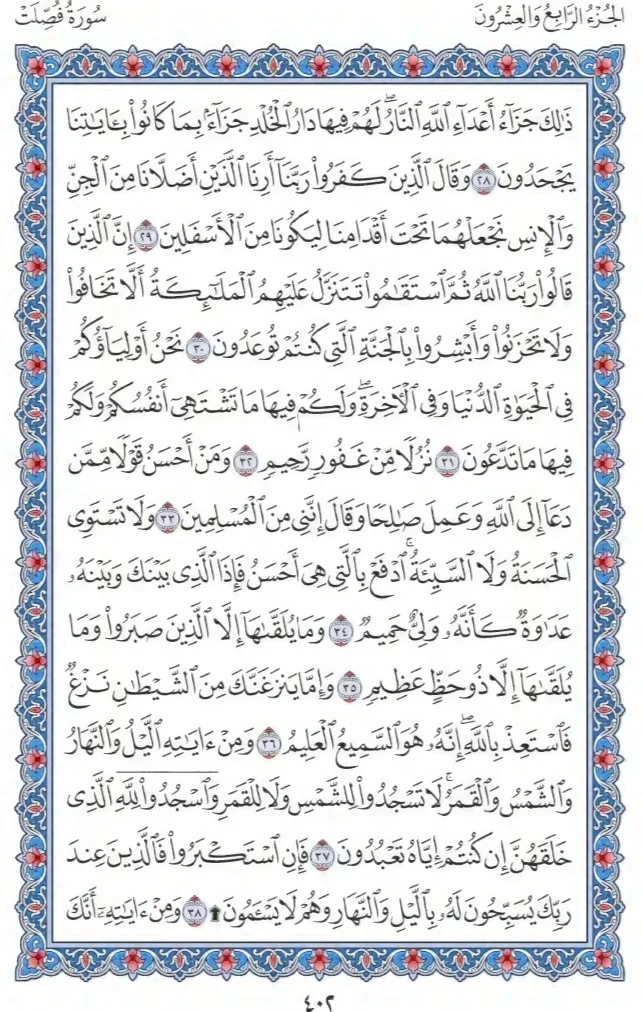 الجُزْءُ الرَّابِعُ وَالعِشْرُونَ
سُورَةُ فُصِّلَتْ
ذَٰلِكَ جَزَآءُ أَعْدَآءِ ٱللَّهِ ٱلنَّارُۖ لَهُمْ فِيهَا دَارُ ٱلْخُلْدِ جَزَآءَۢ بِمَا كَانُوا۟ بِـَٔايَـٰتِنَا
يَجْحَدُونَ ٢٨ وَقَالَ ٱلَّذِينَ كَفَرُوا۟ رَبَّنَآ أَرِنَا ٱلَّذَيْنِ أَضَلَّانَا مِنَ ٱلْجِنِّ
وَٱلْإِنسِ نَجْعَلْهُمَا تَحْتَ أَقْدَامِنَا لِيَكُونَا مِنَ ٱلْأَسْفَلِينَ ٢٩ إِنَّ ٱلَّذِينَ
قَالُوا۟ رَبُّنَا ٱللَّهُ ثُمَّ ٱسْتَقَـٰمُوا۟ تَتَنَزَّلُ عَلَيْهِمُ ٱلْمَلَـٰٓئِكَةُ أَلَّا تَخَافُوا۟
وَلَا تَحْزَنُوا۟ وَأَبْشِرُوا۟ بِٱلْجَنَّةِ ٱلَّتِى كُنتُمْ تُوعَدُونَ ٣٠ نَحْنُ أَوْلِيَآؤُكُمْ
فِى ٱلْحَيَوٰةِ ٱلدُّنْيَا وَفِى ٱلْـَٔاخِرَةِۖ وَلَكُمْ فِيهَا مَا تَشْتَهِىٓ أَنفُسُكُمْ وَلَكُمْ
فِيهَا مَا تَدَّعُونَ ٣١ نُزُلًا مِّنْ غَفُورٍ رَّحِيمٍ ٣٢ وَمَنْ أَحْسَنُ قَوْلًا مِّمَّن
دَعَآ إِلَى ٱللَّهِ وَعَمِلَ صَـٰلِحًا وَقَالَ إِنَّنِى مِنَ ٱلْمُسْلِمِينَ ٣٣ وَلَا تَسْتَوِى
ٱلْحَسَنَةُ وَلَا ٱلسَّيِّئَةُۚ ٱدْفَعْ بِٱلَّتِى هِىَ أَحْسَنُ فَإِذَا ٱلَّذِى بَيْنَكَ وَبَيْنَهُۥ
عَدَٰوَةٌ كَأَنَّهُۥ وَلِىٌّ حَمِيمٌ ٣٤ وَمَا يُلَقَّىٰهَآ إِلَّا ٱلَّذِينَ صَبَرُوا۟ وَمَا
يُلَقَّىٰهَآ إِلَّا ذُو حَظٍّ عَظِيمٍ ٣٥ وَإِمَّا يَنزَغَنَّكَ مِنَ ٱلشَّيْطَـٰنِ نَزْغٌ
فَٱسْتَعِذْ بِٱللَّهِۖ إِنَّهُۥ هُوَ ٱلسَّمِيعُ ٱلْعَلِيمُ ٣٦ وَمِنْ ءَايَـٰتِهِ ٱلَّيْلُ وَٱلنَّهَارُ
وَٱلشَّمْسُ وَٱلْقَمَرُۚ لَا تَسْجُدُوا۟ لِلشَّمْسِ وَلَا لِلْقَمَرِ وَٱسْجُدُوا۟ لِلَّهِ ٱلَّذِى
خَلَقَهُنَّ إِن كُنتُمْ إِيَّاهُ تَعْبُدُونَ ٣٧ فَإِنِ ٱسْتَكْبَرُوا۟ فَٱلَّذِينَ عِندَ
رَبِّكَ يُسَبِّحُونَ لَهُۥ بِٱلَّيْلِ وَٱلنَّهَارِ وَهُمْ لَا يَسْـَٔمُونَ ۩ ٣٨ وَمِنْ ءَايَـٰتِهِۦٓ أَنَّكَ
٤٠٢